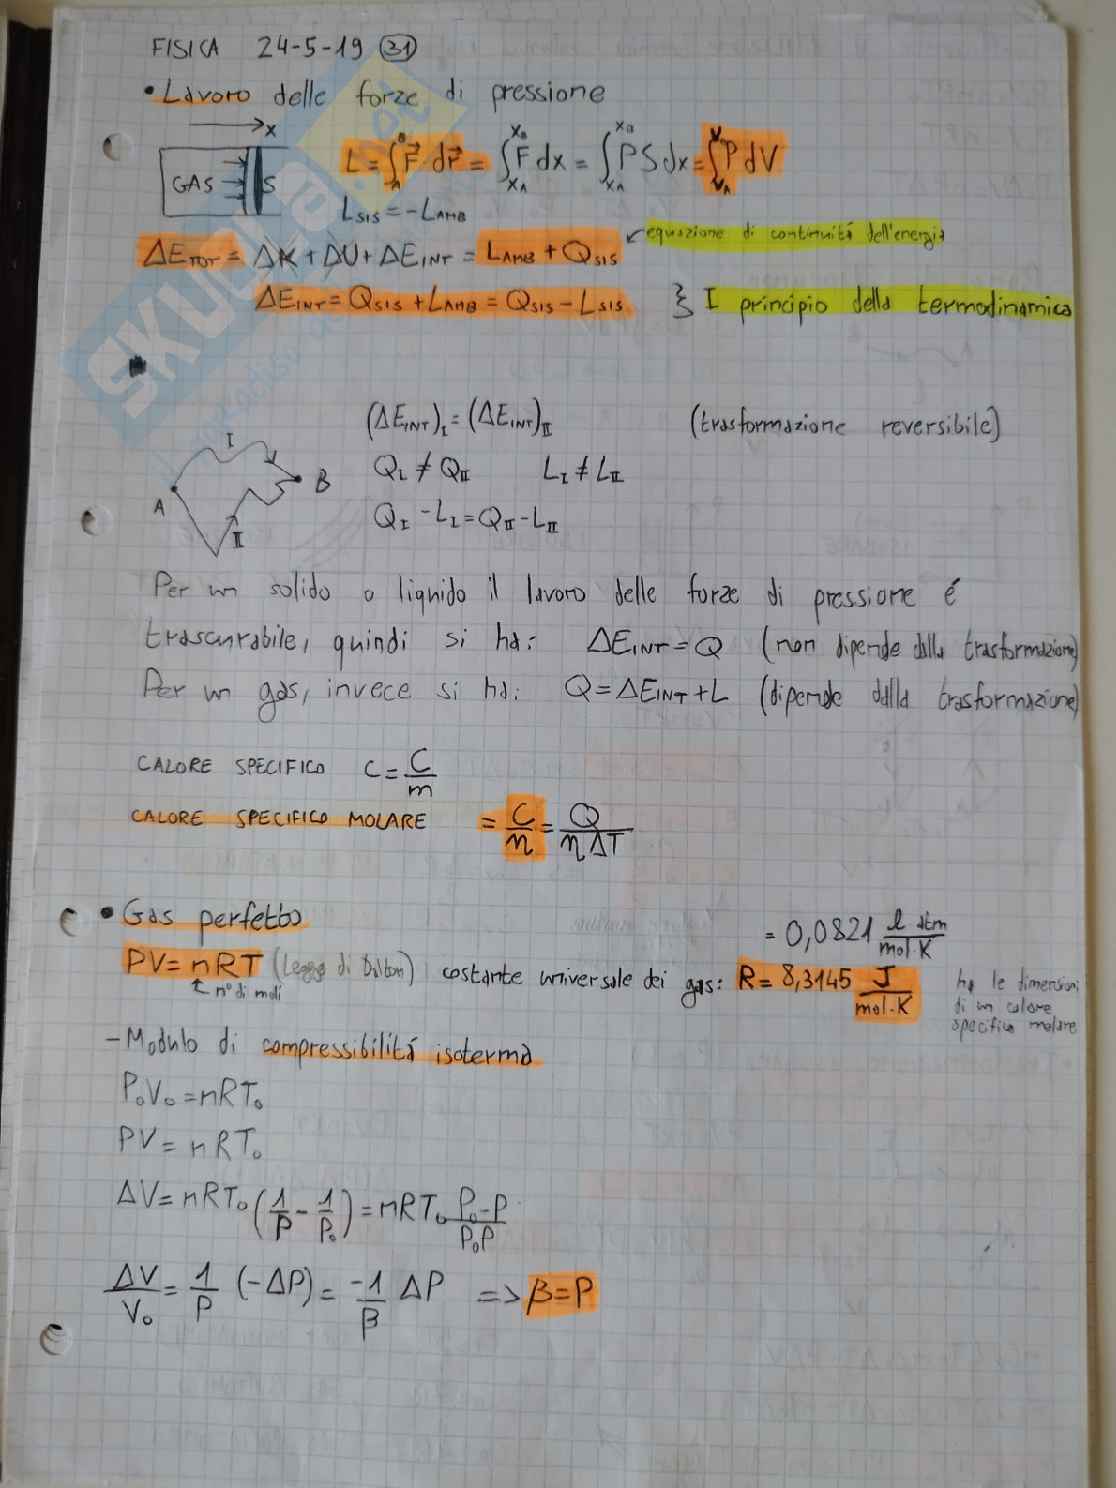 FISICA 24-5-19 (31)
• Lavoro delle forze di pressione
x
GAS S
L = ∫_A^B F⃗ dr⃗ = ∫_{XA}^{XB} F dx = ∫_{XA}^{XB} P S dx = ∫_{VA}^{V} P dV
L_SIS = -L_AMB
ΔE_TOT = ΔK + ΔU + ΔE_INT = L_AMB + Q_SIS ↙ equazione di continuitá dell'energia
ΔE_INT = Q_SIS + L_AMB = Q_SIS - L_SIS } I principio della termodinamica
A I II B
(ΔE_INT)_I = (ΔE_INT)_II (trasformazione reversibile)
Q_I ≠ Q_II L_I ≠ L_II
Q_I - L_I = Q_II - L_II
Per un solido o liquido il lavoro delle forze di pressione é
trascurabile, quindi si ha: ΔE_INT = Q (non dipende dalla trasformazione)
Per un gas, invece si ha: Q = ΔE_INT + L (dipende dalla trasformazione)
CALORE SPECIFICO c = C/m
CALORE SPECIFICO MOLARE = C/n = Q/(n ΔT)
• Gas perfetto
= 0,0821 (l atm)/(mol·K)
PV = nRT (Legge di Dalton) costante universale dei gas: R = 8,3145 J/(mol·K) ha le dimensioni
n° di moli di un calore
specifico molare
- Modulo di compressibilitá isoterma
P₀V₀ = nRT₀
PV = nRT₀
ΔV = nRT₀ (1/P - 1/P₀) = nRT₀ (P₀-P)/(P₀P)
ΔV/V₀ = 1/P (-ΔP) = -1/β ΔP => β = P